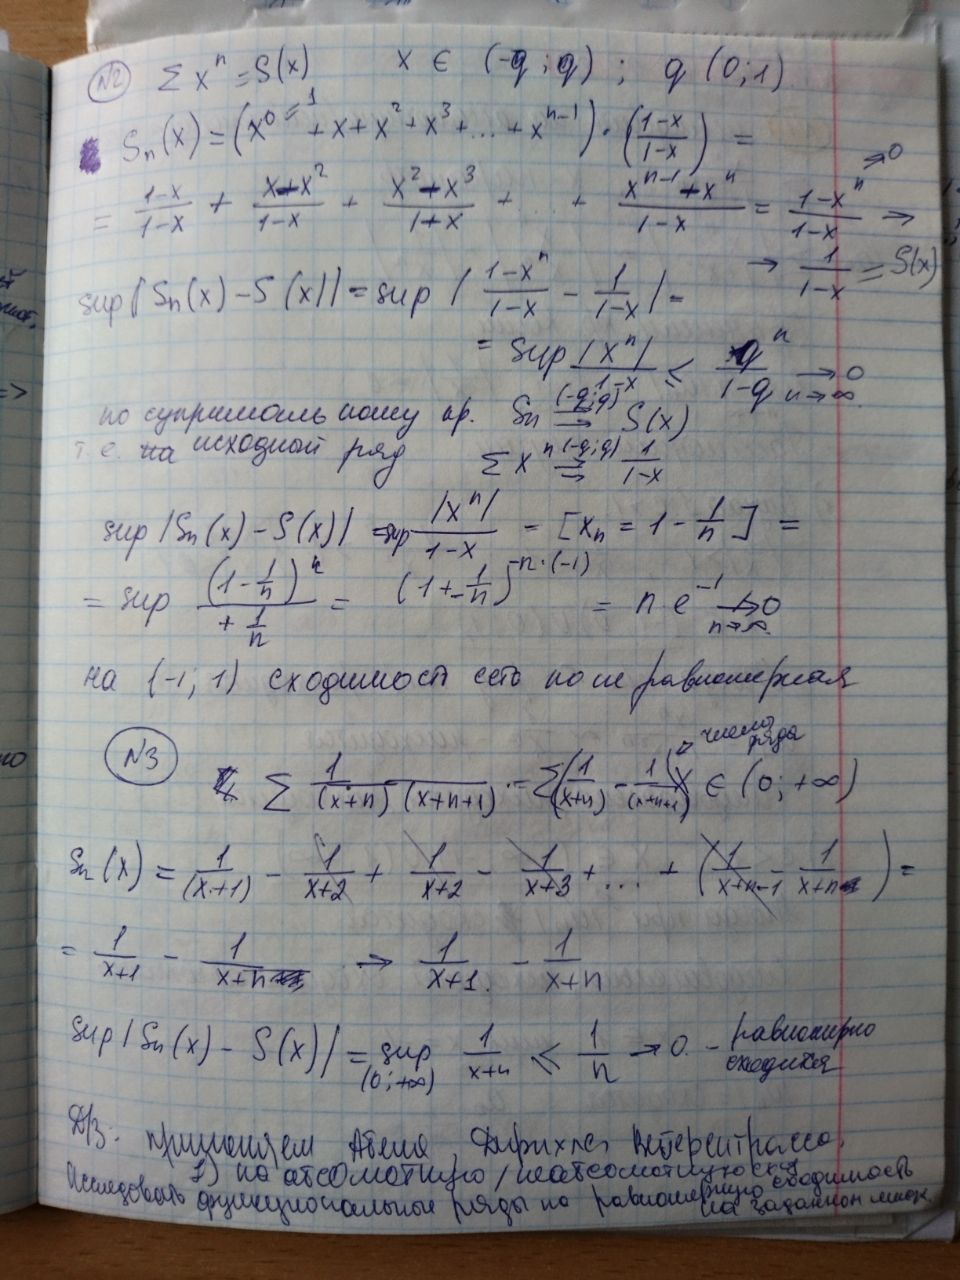 N2 Σ xⁿ = S(x) x ∈ (-q; q) ; q (0; 1)
Sₙ(x) = (x⁰⁼¹ + x + x² + x³ + ... + xⁿ⁻¹) · ((1-x)/(1-x)) =
= (1-x)/(1-x) + (x-x²)/(1-x) + (x²-x³)/(1+x) + ... + (xⁿ⁻¹-xⁿ)/(1-x) = (1-xⁿ)/(1-x) →
→0
→ 1/(1-x) = S(x)
sup |Sₙ(x) - S(x)| = sup |(1-xⁿ)/(1-x) - 1/(1-x)| =
= sup |xⁿ|/(1-x) ≤ qⁿ/(1-q) → 0 n→∞
по супремальному пр. Sₙ ⇉ (-q; q) S(x)
т.е. исходной ряд Σ xⁿ ⇉ (-q; q) 1/(1-x)
sup |Sₙ(x) - S(x)| = sup |xⁿ|/(1-x) = [xₙ = 1 - 1/n] =
= sup (1 - 1/n)ⁿ / (+ 1/n) = (1 + 1/-n)^(-n·(-1)) = n e⁻¹ ↛ 0 n→∞
на (-1; 1) сходимость есть но не равномерная
N3 Σ 1/((x+n)(x+n+1)) = Σ(1/(x+n) - 1/(x+n+1)) x ∈ (0; +∞)
ряда
Sₙ(x) = 1/(x+1) - 1/(x+2) + 1/(x+2) - 1/(x+3) + ... + (1/(x+n-1) - 1/(x+n)) =
= 1/(x+1) - 1/(x+n) → 1/(x+1) - 1/(x+n)
sup |Sₙ(x) - S(x)| = sup (0; +∞) 1/(x+n) ≤ 1/n → 0. - равномерно
сходится
Д/З: Абеля, Дирихле,
1) на абсолютную / неабсолютную
Исследовать функциональные ряды на равномерную сходимость
на заданном множ.